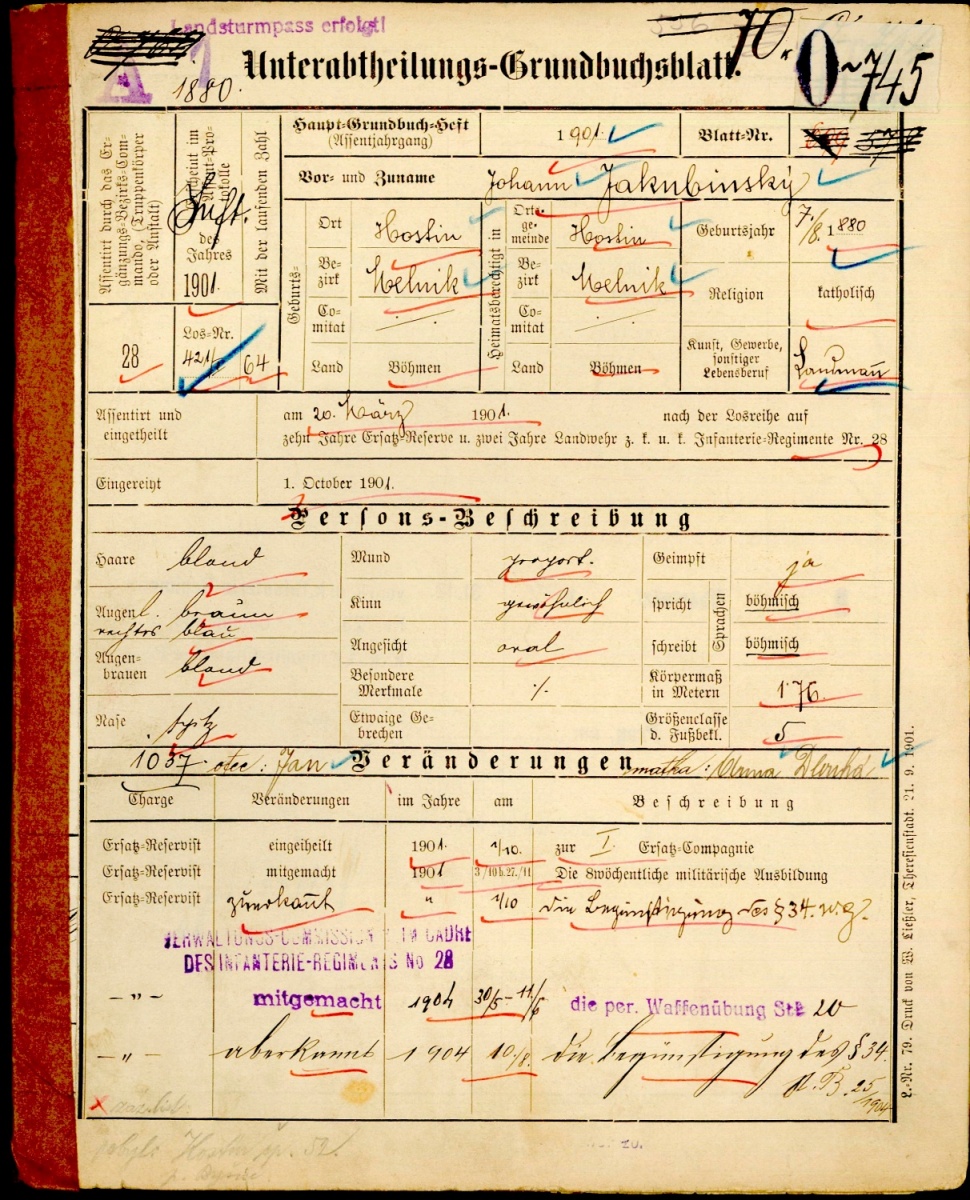 Landsturmpass erfolgt!
70
Unterabtheilungs-Grundbuchsblatt.
O~745
A 1
1880.
Assentirt durch das Ergänzungs-Bezirks-Commando, (Truppenkörper oder Anstalt)
Erscheint im Assent-Protokolle
des Jahres
1901.
Mit der laufenden Zahl
28
Los-Nr.
421
64
Haupt-Grundbuch-Heft
(Assentjahrgang)
1901.
Blatt-Nr.
Vor- und Zuname
Johann Jakubinský
Geburts-
Ort Hostin
Bezirk Melnik
Comitat
Land Böhmen
Heimatsberechtigt in
Ortsgemeinde Hostin
Bezirk Melnik
Comitat
Land Böhmen
Geburtsjahr 7./8. 1880
Religion katholisch
Kunst, Gewerbe, sonstiger Lebensberuf
Assentirt und eingetheilt
am 20. März 1901. nach der Losreihe auf
zehn Jahre Ersatz-Reserve u. zwei Jahre Landwehr z. k. u. k. Infanterie-Regimente Nr. 28
Eingereiht 1. October 1901.
Persons-Beschreibung
Haare bland
Augen l. braun
rechtes blau
Augenbrauen bland
Nase spitz
Mund proport.
Kinn gewöhnlich
Angesicht oval
Besondere Merkmale ./.
Etwaige Gebrechen
Geimpft ja
Sprachen
spricht böhmisch
schreibt böhmisch
Körpermaß in Metern 1·76.
Größenclasse d. Fußbekl. 5
1037. otec: Jan
Veränderungen
matka: Anna Dlouhá
Charge Veränderungen im Jahre am Beschreibung
Ersatz-Reservist eingetheilt 1901. 1/10. zur I. Ersatz-Compagnie
Ersatz-Reservist mitgemacht 1901 3/10 b. 27./11 Die 8wöchentliche militärische Ausbildung
Ersatz-Reservist zuerkannt " 1/10 die Begünstigung des § 34. W.G.
VERWALTUNGS-COMMISSION IM CADRE
DES INFANTERIE-REGIMENTS No 28
–"– mitgemacht 1904 30/5–11/6 die per. Waffenübung 20
–"– aberkannt 1904 10./8. die Begünstigung des § 34.
25/1904
Hostin čp. 52.
L.-Nr. 79. Druck von W. Ließler, Theresienstadt. 21. 9. 1901.